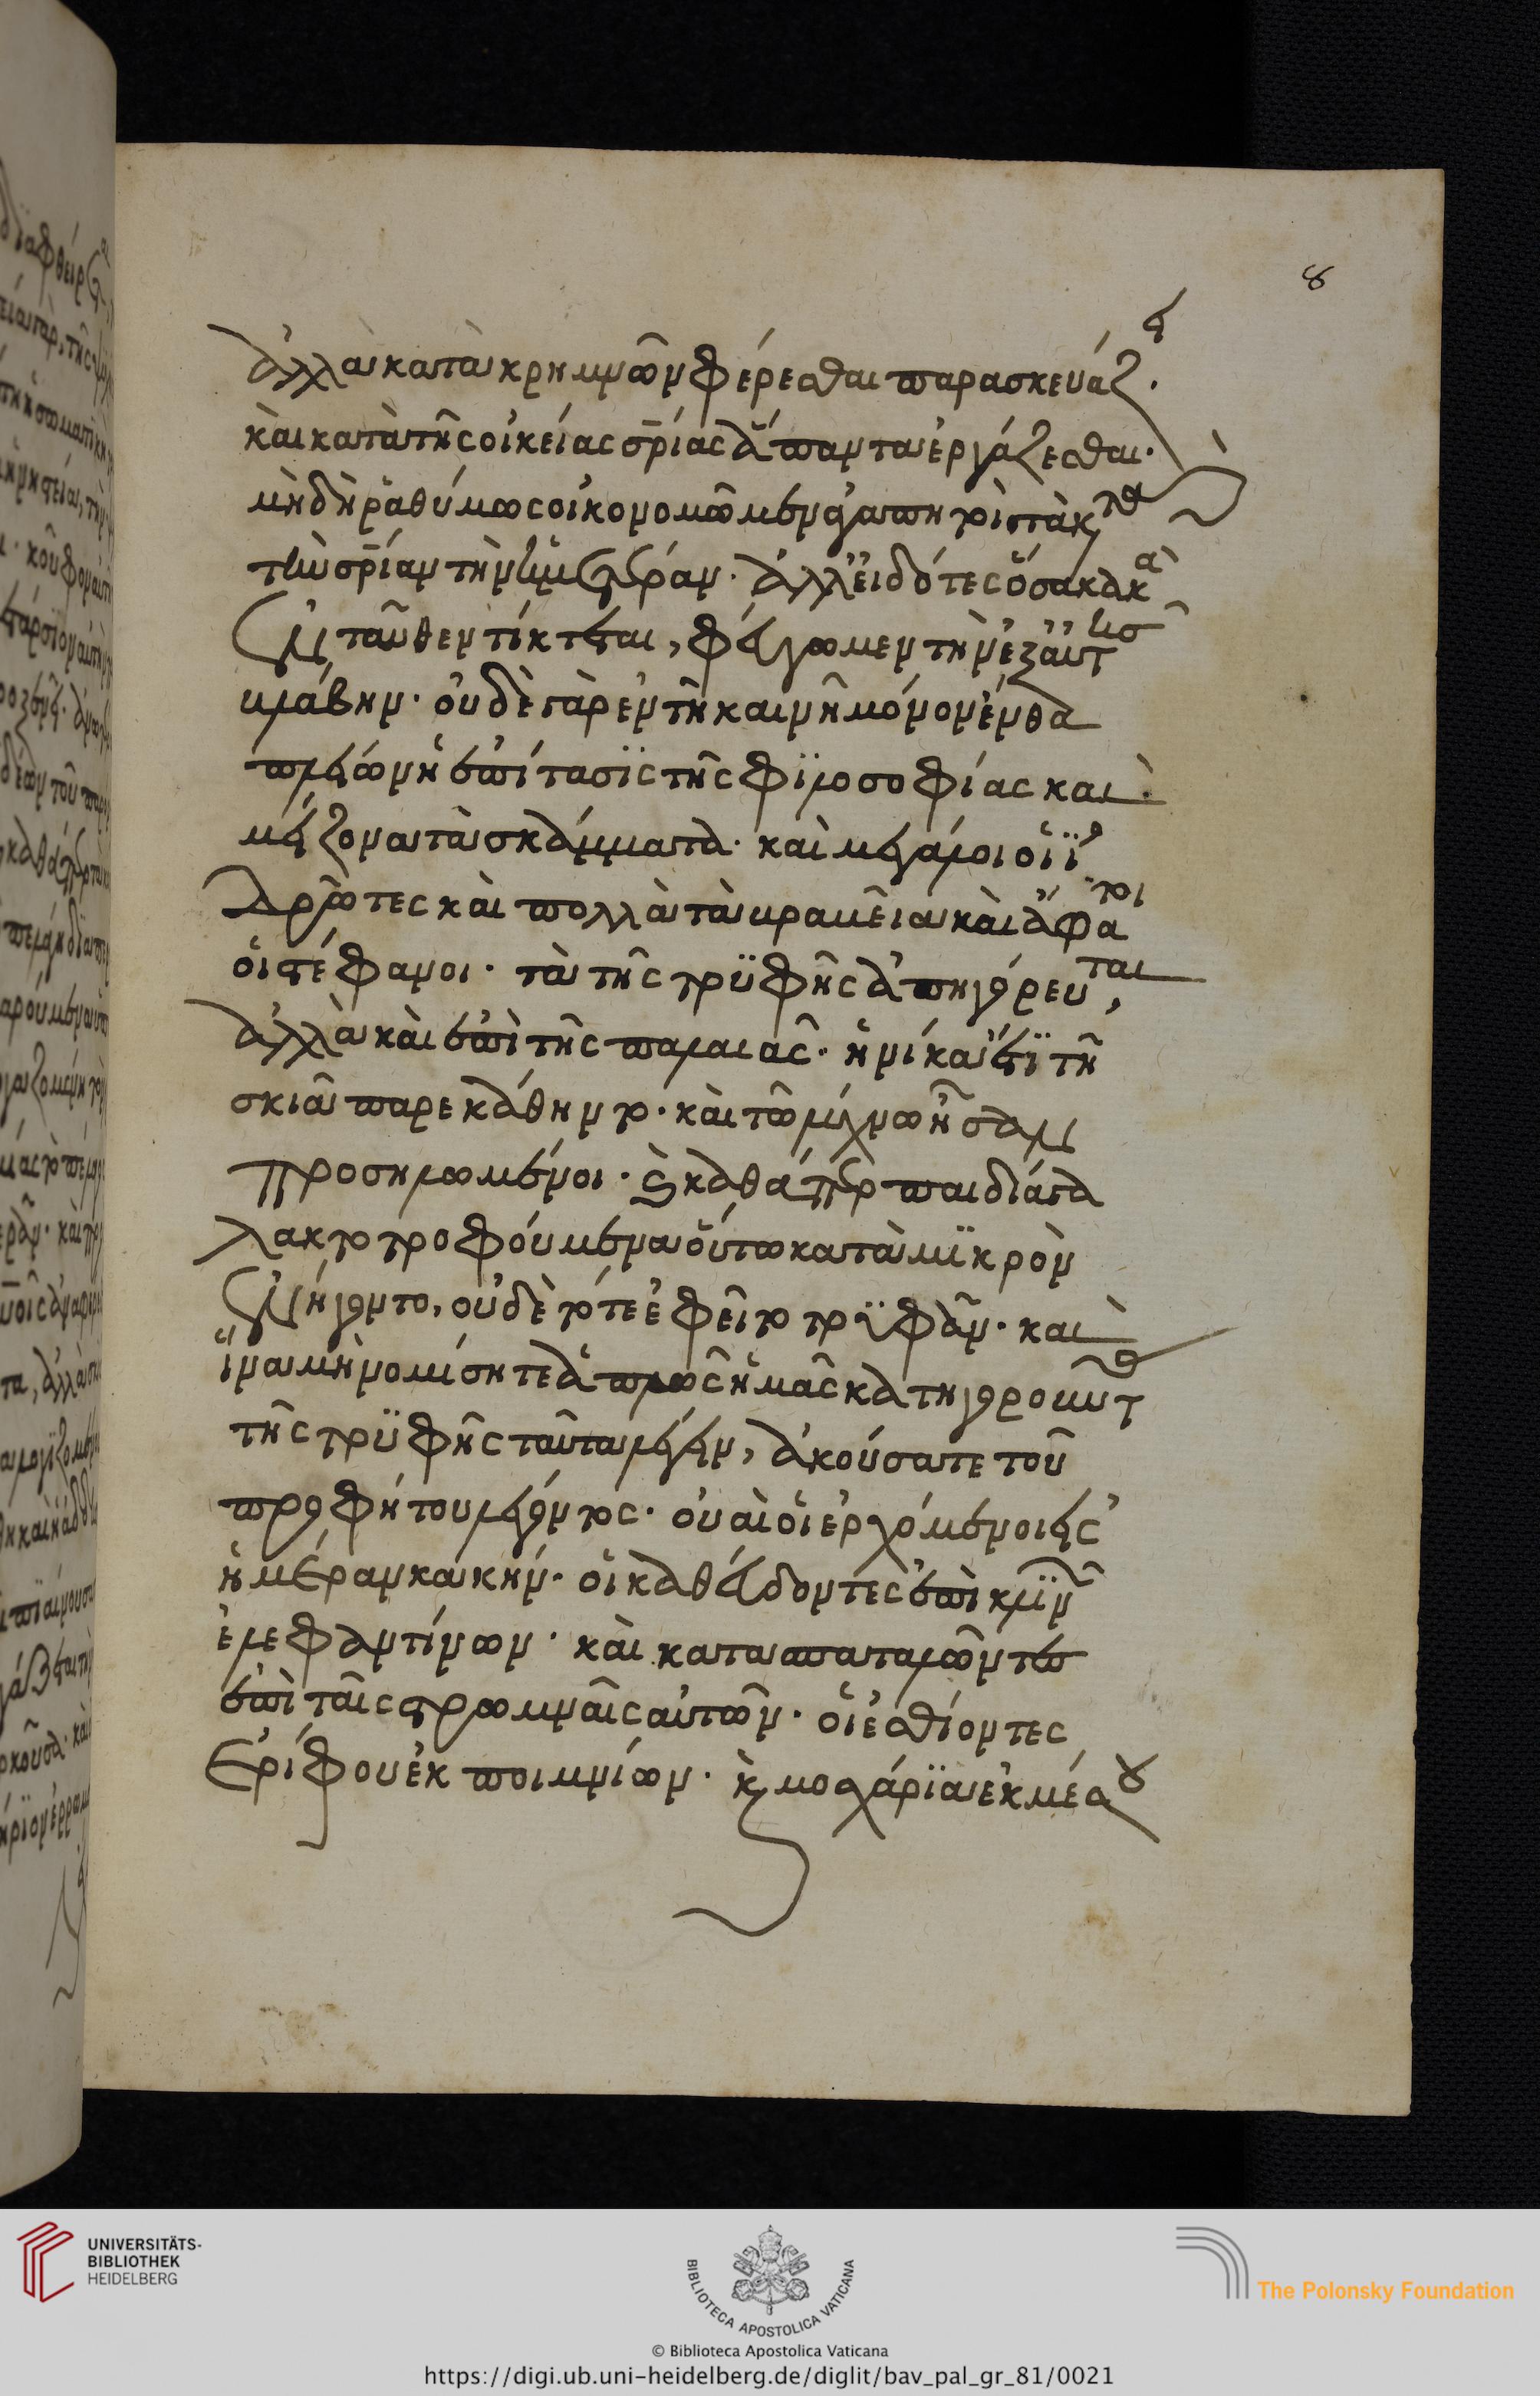 8
ἀλλὰ κατὰ κρημνῶν φέρεσθαι παρασκευάζει.
καὶ κατὰ τῆς οἰκείας σρίας ἅπαντα ἐργάζεσθαι.
μὴ δὴ ῥαθύμως οἰκονομῶμεν ἀγαπητοὶ τὰ κτὰ
τὴν σρίαν τὴν ἡμετέραν. ἀλλ' εἰδότες ὅσα κακὰ
ἐντεῦθεν τίκτεται, φεύγωμεν τὴν ἐξ αὐτῆς
βλάβην. οὐδὲ γὰρ ἐν τῇ καινῇ μόνον ἔνθα
πλείων ἡ ἐπίτασις τῆς φιλοσοφίας καὶ
μείζονα τὰ σκάμματα. καὶ μεγάλοι οἱ
ἱδρῶτες καὶ πολλὰ τὰ βραβεῖα καὶ ἄφατοι
οἱ στέφανοι. τὰ τῆς τρυφῆς ἀπηγόρευται,
ἀλλὰ καὶ ἐπὶ τῆς παλαιᾶς. ἡνίκα ἔτι τῇ
σκιᾷ παρεκάθηντο. καὶ τῷ λύχνῳ ἦσαν
προσηλωμένοι. καὶ καθάπερ παιδία τὰ
λακτοτροφούμενα οὕτω κατὰ μικρὸν
ἐνήγοντο, οὐδὲ τότε ἐφεῖτο τρυφᾶν. καὶ
ἵνα μὴ νομίσητε ἁπλῶς ἡμᾶς κατηγοροῦντας
τῆς τρυφῆς ταῦτα λέγειν, ἀκούσατε τοῦ
προφήτου λέγοντος. οὐαὶ οἱ ἐρχόμενοι εἰς
ἡμέραν κακήν. οἱ καθεύδοντες ἐπὶ κλινῶν
ἐλεφαντίνων. καὶ κατασπαταλῶντες
ἐπὶ ταῖς στρωμναῖς αὐτῶν. οἱ ἐσθίοντες
ἐρίφου ἐκ ποιμνίων. καὶ μοσχάρια ἐκ μέσου
UNIVERSITÄTS-
BIBLIOTHEK
HEIDELBERG
BIBLIOTECA APOSTOLICA VATICANA
The Polonsky Foundation
© Biblioteca Apostolica Vaticana
https://digi.ub.uni-heidelberg.de/diglit/bav_pal_gr_81/0021